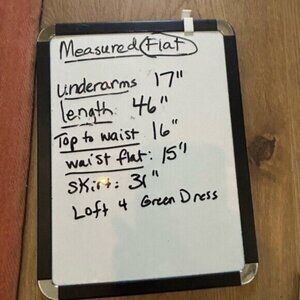 Measured Flat
underarms 17"
length: 46"
Top to waist 16"
waist flat: 15"
skirt: 31"
Loft 4 Green Dress